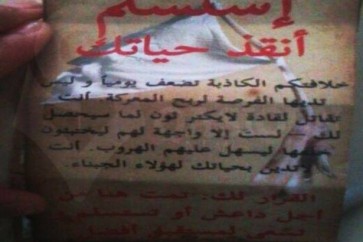 إستسلم
أنقذ حياتك
خلافتكم الكاذبة تضعف يومياً و ليس
لديها الفرصة لربح المعركة. أنت
تقاتل لقادة لايكترثون لما سيحصل
لك. لست إلا واجهة لهم ليختبئون
خلفها ليسهل عليهم الهروب. أنت
تدين بحياتك لهؤلاء الجبناء.
القرار لك: تمت هنا من
أجل داعش أو تستسلم و